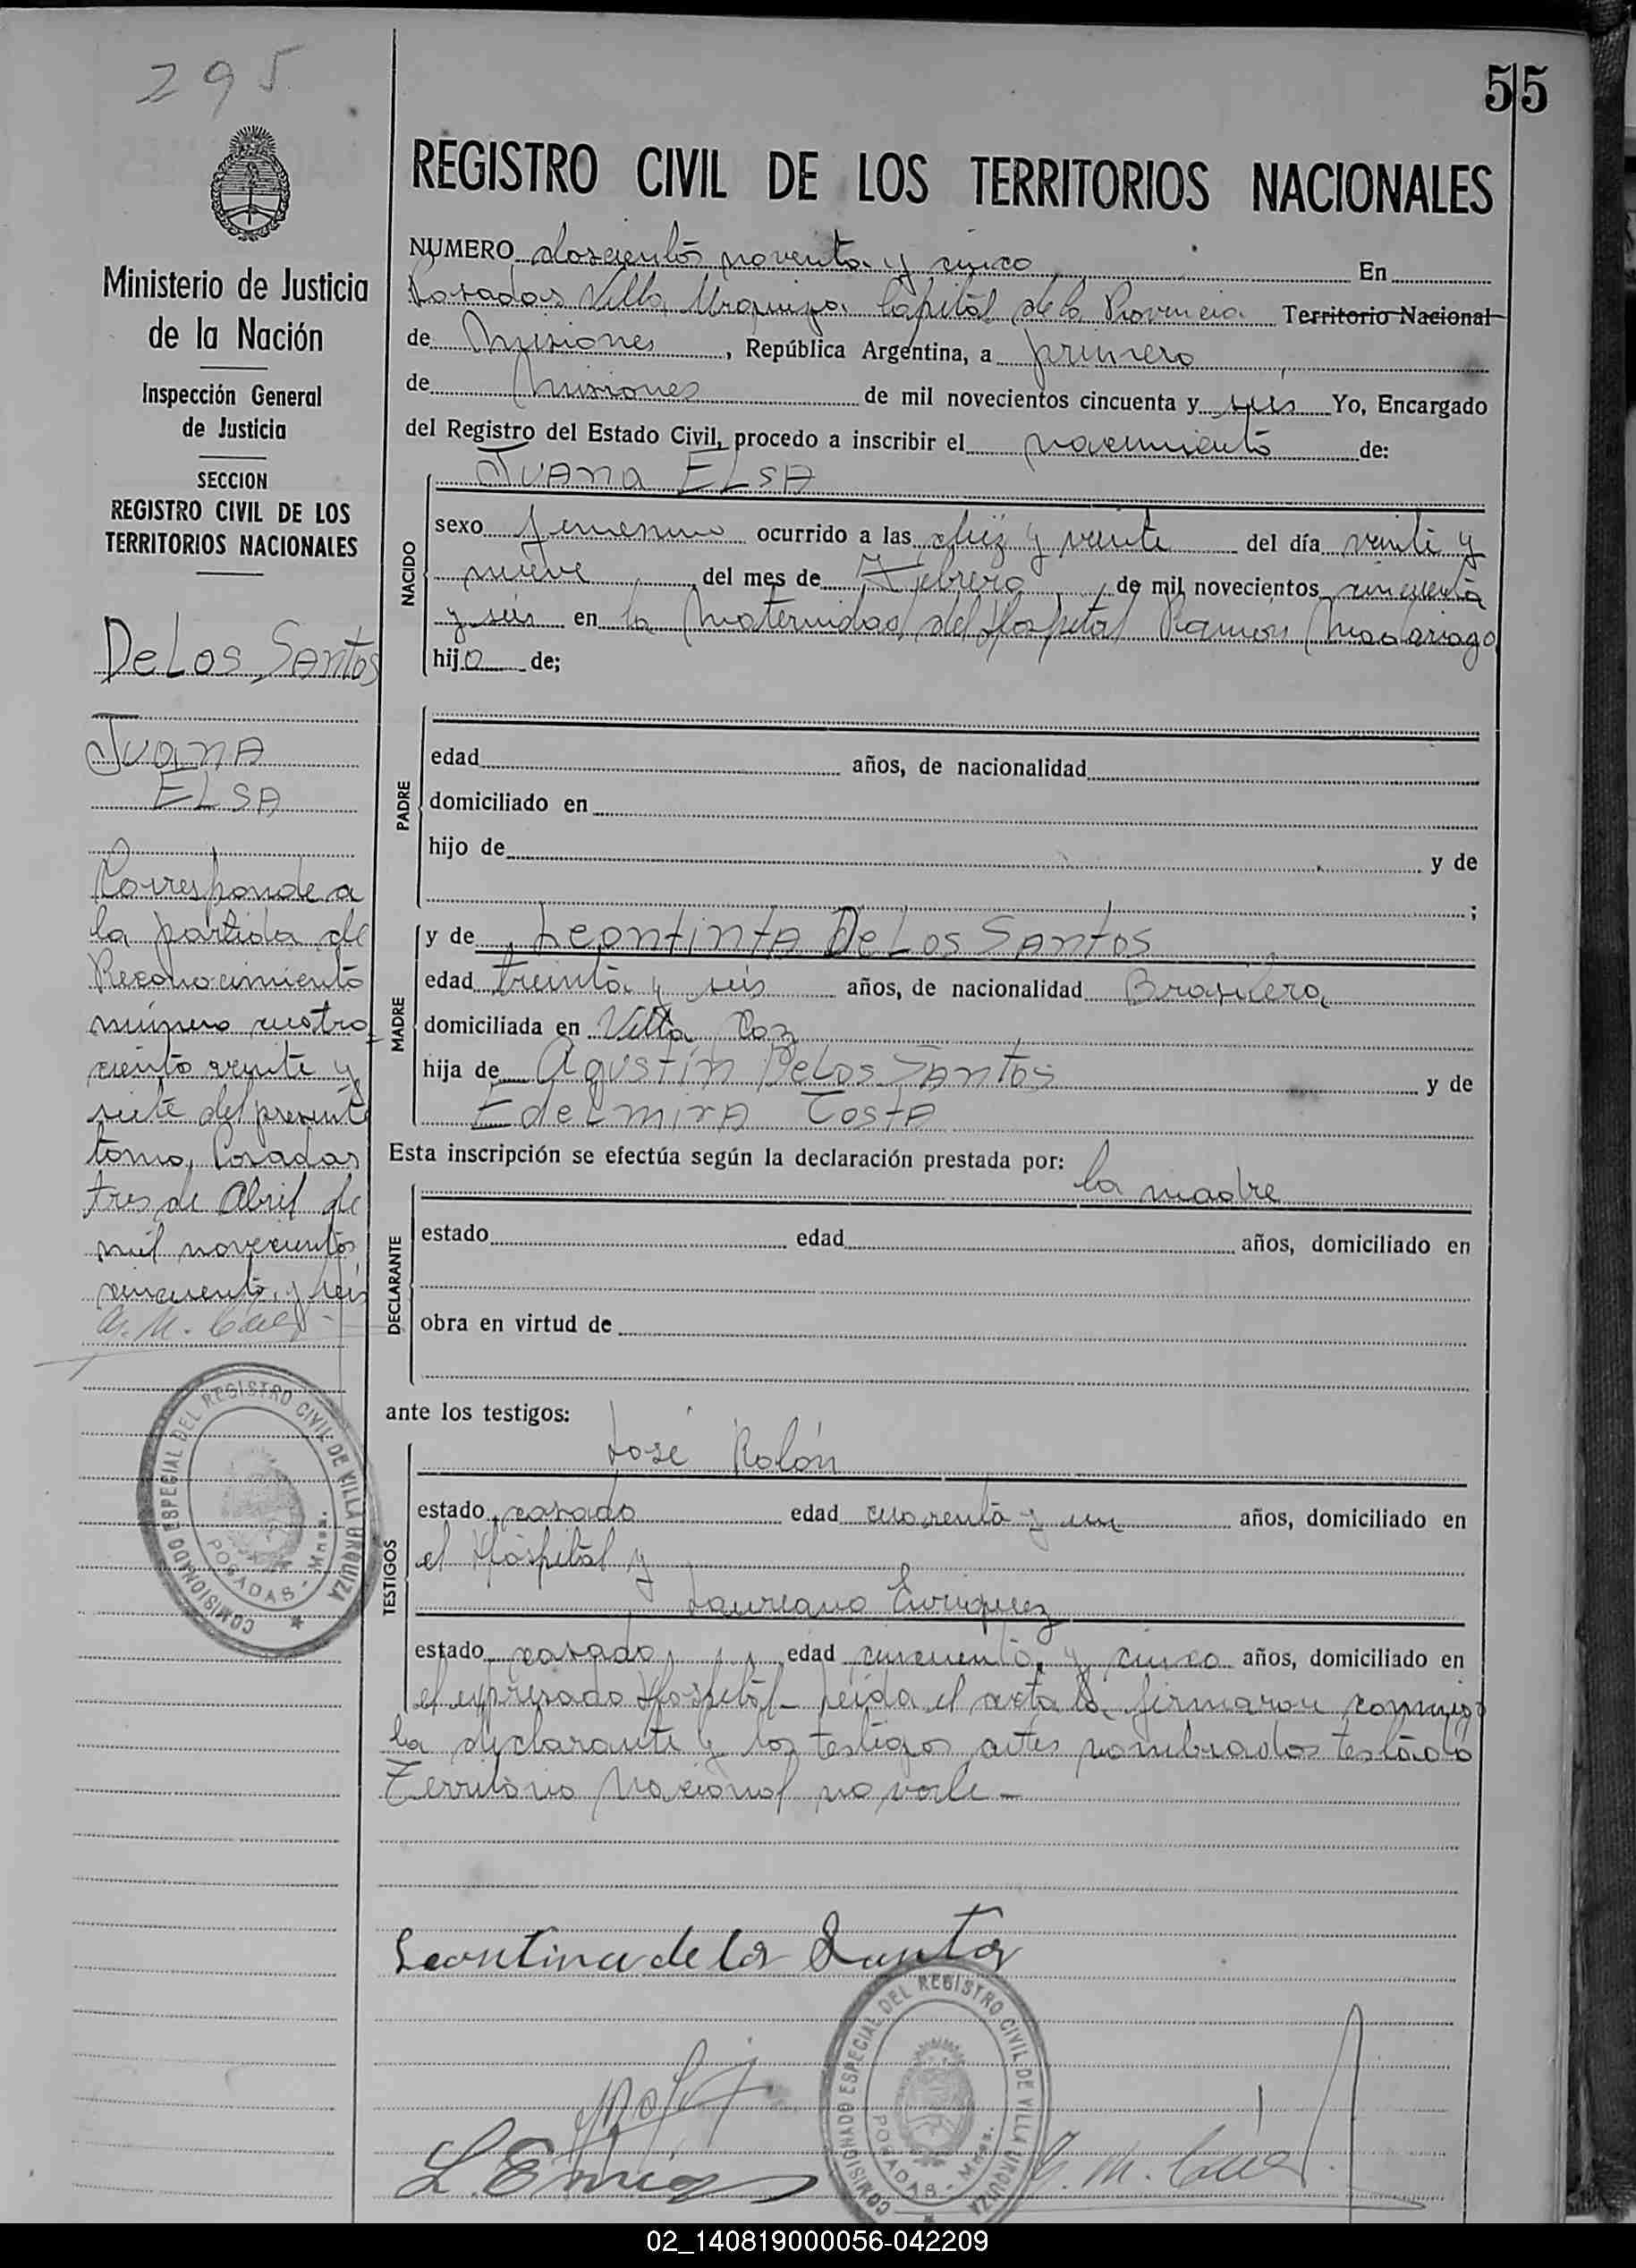 295
55
REGISTRO CIVIL DE LOS TERRITORIOS NACIONALES
NUMERO doscientos noventa y cinco En
Posadas Villa Urquiza Capital de la Provincia Territorio Nacional
de Misiones, República Argentina, a primero
de Misiones de mil novecientos cincuenta y seis Yo, Encargado
del Registro del Estado Civil, procedo a inscribir el nacimiento de:
NACIDO
JUANA ELSA
sexo femenino ocurrido a las diez y veinte del día veinti y
nueve del mes de Febrero de mil novecientos cincuenta
y seis en la Maternidad del Hospital Ramón Madariaga
hija de;
PADRE
edad años, de nacionalidad
domiciliado en
hijo de y de
;
MADRE
y de Leontinta De Los Santos
edad treinta y seis años, de nacionalidad Brasilera
domiciliada en Villa Coz
hija de Agustin De Los Santos y de
Edelmira Costa
Esta inscripción se efectúa según la declaración prestada por:
la madre
DECLARANTE
estado edad años, domiciliado en
obra en virtud de
ante los testigos:
TESTIGOS
José Rolón
estado casado edad cuarenta y un años, domiciliado en
el Hospital y
Laureano Enriquez
estado casado edad cincuenta y cinco años, domiciliado en
el expresado Hospital - Leida el acta la firmaron conmigo
la declarante y los testigos antes nombrados testado
Territorio Nacional no vale -
Leontina de los Santos
L. Enriq
Ministerio de Justicia
de la Nación
Inspección General
de Justicia
SECCION
REGISTRO CIVIL DE LOS
TERRITORIOS NACIONALES
De Los Santos
Juana
ELSA
Corresponde a
la partida de
Reconocimiento
número cuatro
ciento veinte y
siete del presente
tomo, Posadas
tres de Abril de
mil novecientos
cincuenta y seis
COMISIONADO ESPECIAL DEL REGISTRO CIVIL DE VILLA URQUIZA
POSADAS - Mnes.
COMISIONADO ESPECIAL DEL REGISTRO CIVIL DE VILLA URQUIZA
POSADAS - Mnes.
02_140819000056-042209